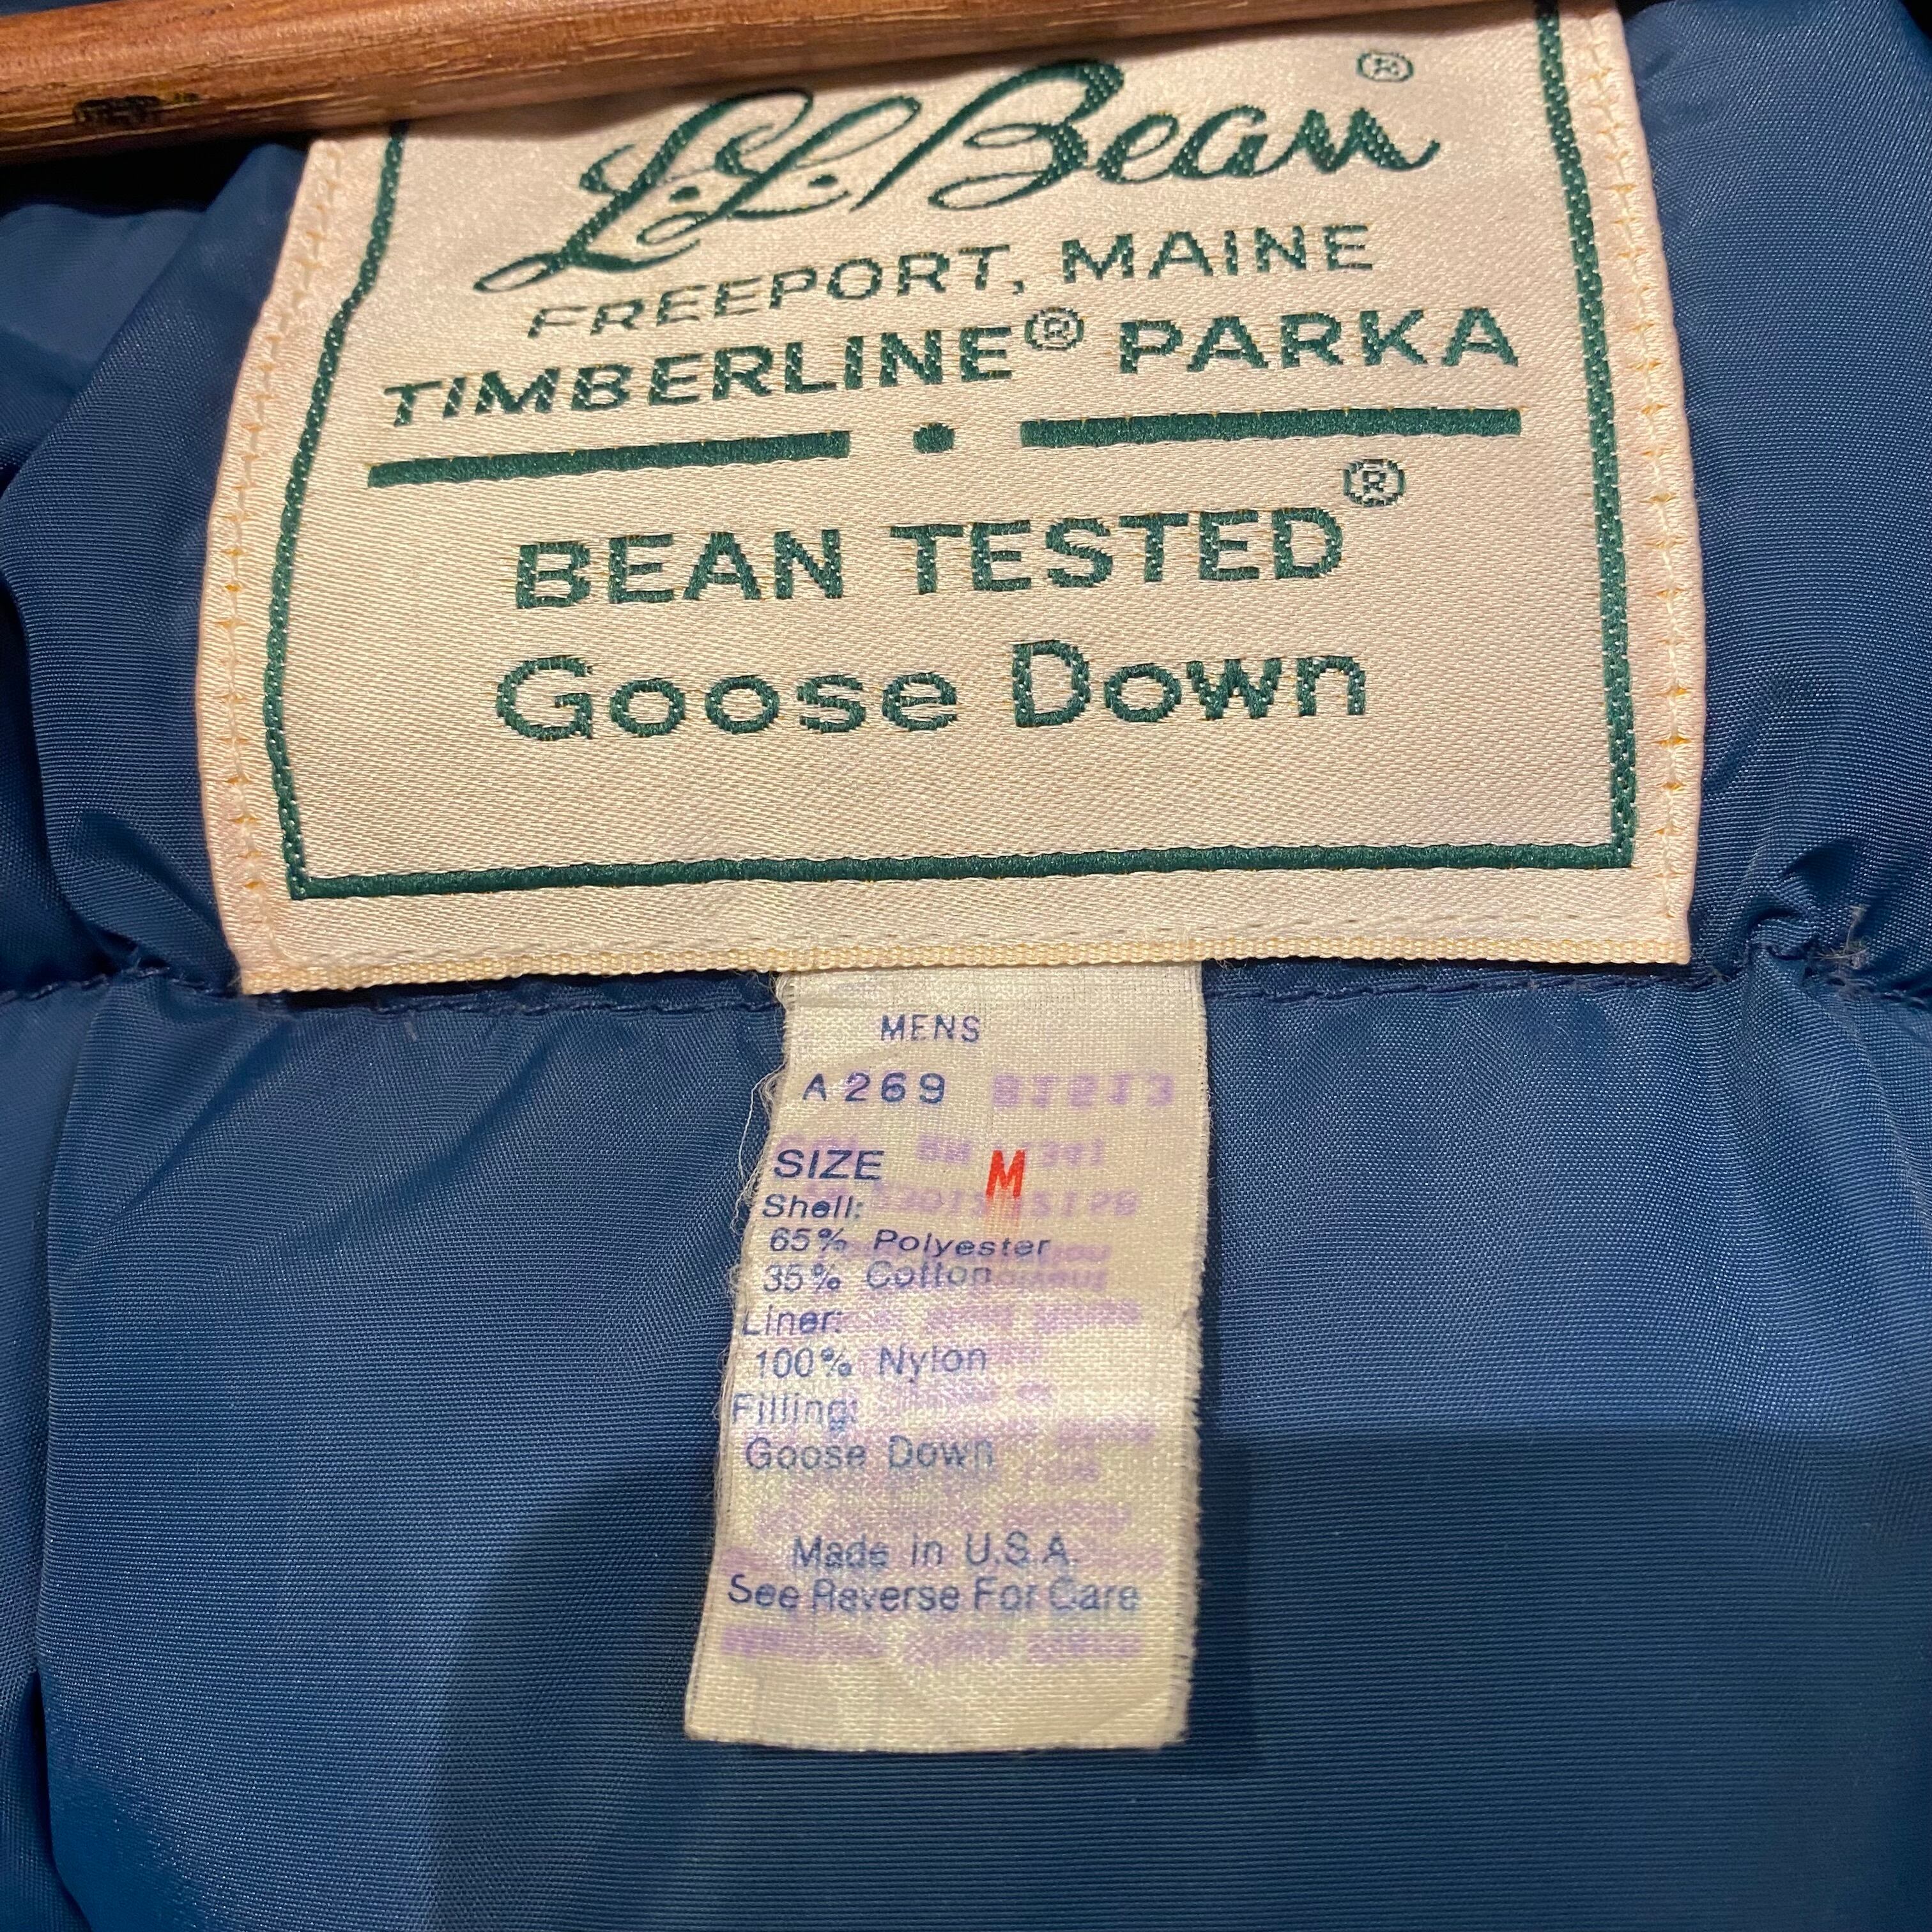 L.L.Bean®
FREEPORT, MAINE
TIMBERLINE® PARKA
BEAN TESTED®
Goose Down
MENS
A269
SIZE M
Shell:
65% Polyester
35% Cotton
Liner:
100% Nylon
Filling:
Goose Down
Made in U.S.A.
See Reverse For Care